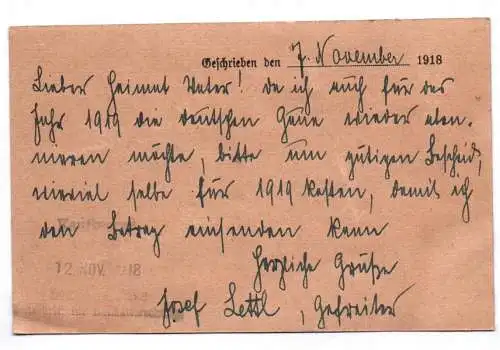 Geschrieben den 7. November 1918
Lieber Heimat Vater! da ich auch für das
Jahr 1919 die deutschen Gaue wieder abon-
nieren möchte, bitte um gütigen Bescheid,
wieviel selbe für 1919 kosten, damit ich
den Betrag einsenden kann
12 NOV. 18
Herzliche Grüße
Josef Lettl, Gefreiter